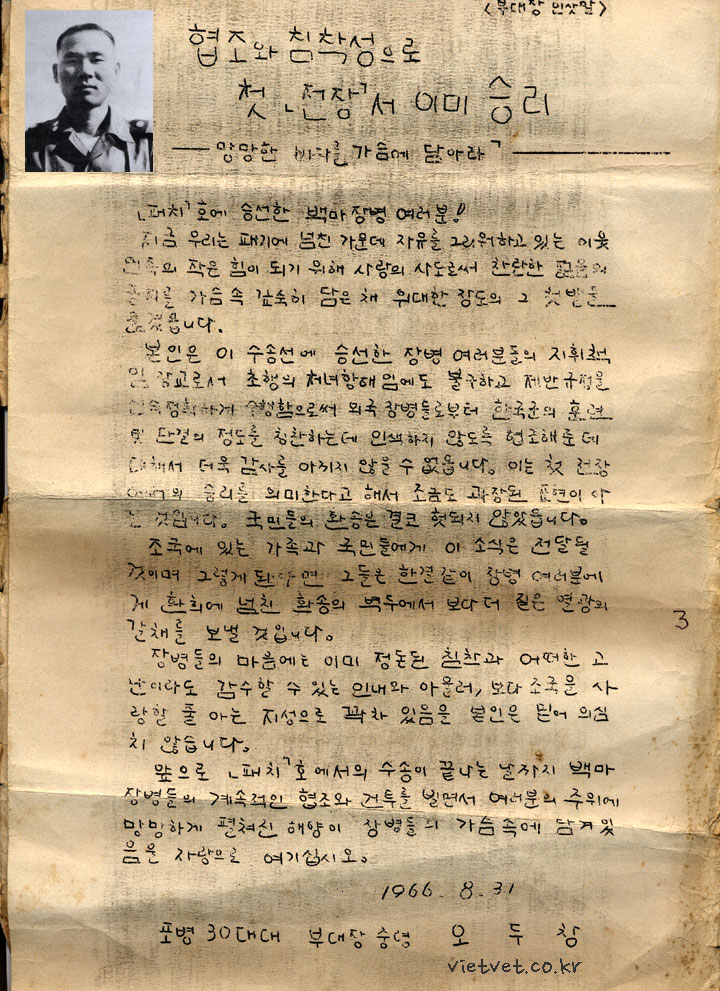 <부대장 인삿말>
협조와 침착성으로
첫 「전장」서 이미 승리
망망한 바다를 가슴에 담아라
「패치」호에 승선한 백마 장병 여러분!
지금 우리는 패기에 넘친 가운데 자유를 그리워하고 있는 이웃
민족의 작은 힘이 되기 위해 사랑의 사도로써 찬란한
를 가슴속 깊숙히 담은 채 위대한 장도의 그 첫발을
본인은 이 수송선에 승선한 장병 여러분들의 지휘책
임 장교로서 초행의 처녀항해임에도 불구하고 제반규정을
신속정확하게 수행함으로써 외국 장병들로부터 한국군의 훈련
및 단결의 정도를 칭찬하는데 인색하지 않도록 협조해준데
대해서 더욱 감사를 아끼지 않을 수 없읍니다. 이는 첫 전장
에서의 승리를 의미한다고 해서 조금도 과장된 표현이 아
닌 것입니다. 국민들의 환송은 결코 헛되지 않았읍니다.
조국에 있는 가족과 국민들에게 이 소식은 전달될
것이며 그렇게 된다면 그들은 한결같이 장병 여러분에
게 환희에 넘친 환송의 부두에서 보다 더 짙은 열광의
갈채를 보낼 것입니다.
장병들의 마음에는 이미 정돈된 침착과 어떠한 고
난이라도 감수할 수 있는 인내와 아울러, 보다 조국을 사
랑할 줄 아는 지성으로 꽉차 있음을 본인은 믿어 의심
치 않습니다.
앞으로 「패치」호에서의 수송이 끝나는 날까지 백마
장병들의 계속적인 협조와 건투를 빌면서 여러분의 주위에
망망하게 펼쳐진 해양이 장병들의 가슴속에 담겨있
음을 자랑으로 여기십시오.
3
1966. 8. 31
포병 30대대 부대장 중령 오 두 참
vietvet.co.kr